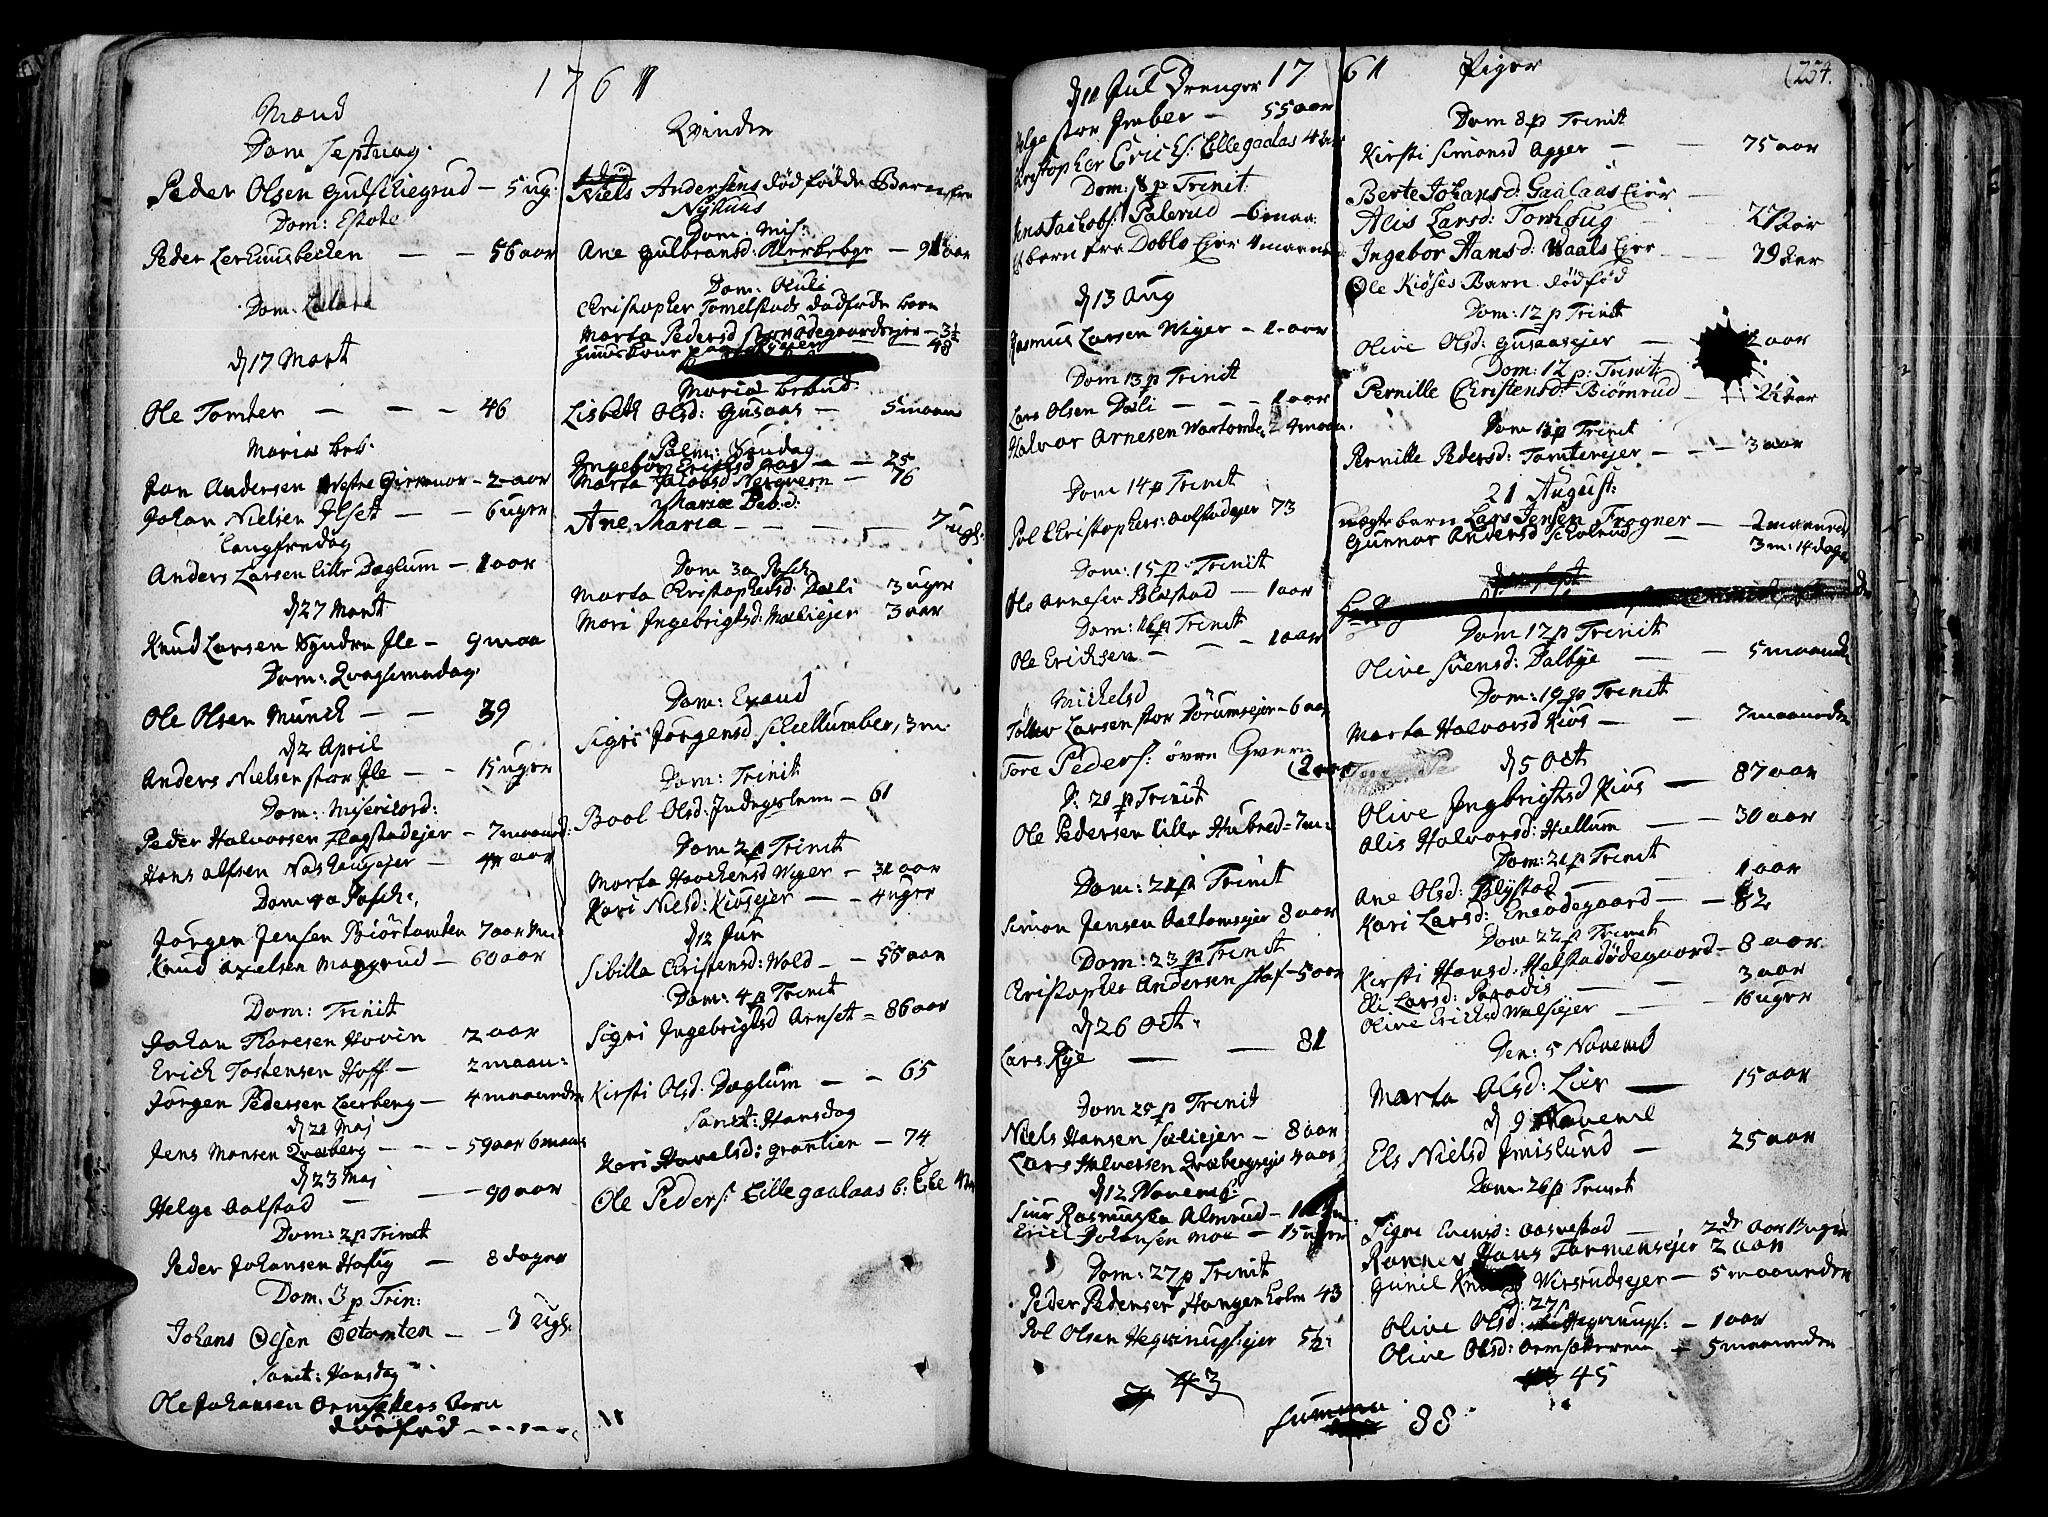 1761
Mænd
Dom Septuag.
Peder Olsen Gulschiegrud - 5 ug:
Dom: Estote
Peder Lerhuusbechen - - 56 aar
Dom: Lætare
d 17 Mart
Ole Tomter - - - 46
Mariæ beb:
Jan Andersen Westre - 2 aar
Johan Nielsen Ilset - - 6 uger
Langfredag
Anders Larsen lille Døglum - 1 aar
d 27 Mart
Knud Larsen Syndre Ile - 9 maa
Dom: Qvasimodog:
Ole Olsen Munch - - 39
d 2 April
Anders Nielsen stor Ile - - 15 uger
Dom: Misericord:
Peder Halvorsen Flagstadejer - 7 maaned:
Hans Alfsen Nashaugejer - aar
Dom 4 a Pasch:
Jørgen Jensen Biørtomten 7 aar
Knud Axelsen Mangrud - 60 aar
Dom: Trinit
Johan Thoresen Hovin 2 aar
Erich Tostensen Hoff - 2 maan:
Jørgen Pedersen Leerberg - 4 maaneder
d 21 Maj
Jens Monsen Qvæberg - - - 59 aar 6 maan
d 23 Maj
Helge Aalstad - - - 90 aar
Dom: 2 p Trinit
Peder Johansen Haslig - 8 dager
Dom: 3 p Trin:
Johans Olsen Oetomten - - 3 Ugl:
Sanct: Hansdag
Ole Johansen Ormsetters barn
dødfød
Qvinder
Niels Andersens dødfødde Barn fra
Nyhuus
Dom: Mis:
Ane Gulbransd: - 91 aar
Dom: Oculi
Christopher Tomelstads dødfødde barn
Marta Pedersd - 3½
48
Mariæ bebud
Lisbeth Olsd: Gusaas - 5 maan
Palm: Søndag
Ingebor Erichsd - - 25
Marta Jacobsd Nerqvern - 76
Mariæ Beb: d:
Ane Maria - - - - 7 ugl:
Dom 3 a Pasch
Marta Christophersd: Dæli 3 uger
Mari Ingebrigtsd: Mæliejer 3 aar
Dom: Exaud
Sigri Jørgensd Schellumber, 3 m
Dom: Trinit
Bool Olsd: Indregslem - 61
Dom 2 p Trinit
Marta Haachensd Wiger - 31 aar
Kari Nielsd: Kiøsejer - - 4 uger
d 12 Jun
Sibilla Christensd: Wold - - 56 aar
Dom: 4 p Trinit
Sigri Ingebrigtsd Arnset = 86 aar
Kirsti Olsd: Døglum - - 65
Sanct: Hansdag
Kari Havelsd: Granlien - 74
Ole Peders: Lille gaalaas b:
1761
d 11 Jul Drenger
Helge stor Imber - 55 aar
Christopher Erichs: Lille gaalas 4 aar
Dom: 8 p Trinit
Jens Jacobs: Palerud - 6 maa:
Et barn fra Doblo Eier 4 maaned:
d 13 Aug
Rasmus Larsen Wiger - 1 aar
Dom 13 p Trinit
Lars Olsen Dæli - - - 1 aar
Halvor Arnesen 4 maan.
Dom 14 p Trinit
Pol Christophers: Aalstadejer 73
Dom: 15 p. Trinit
Ole Arnesen Blæstad - 1 aar
Dom: 16 p Trinit
Ole Erichsen - - - 1 aar
Michelsd
Tøllev Larsen stor Dørumsejer - 6 aar
Tore Peders: øvre Qvern
(2 aar
D: 20 p Trinit
Ole Pedersen lille Hubred = 7 m:
Dom: 21 p Trinit
Simon Jensen Aaltomsejer 8 aar
Dom: 23 p Trinit
Christopher Andersen - 5 aar
d 26 Oct:
Lars Rye - - 81
Dom 20 p Trinit
Niels Hansen Sæliejer - 8 aar
Lars Halversen Qvæbergsejr 4 aar
d 12 Novemb:
Siur Rasmussen Almrud -
Erich Johansen Moe - 15 uger
Dom: 27 p Trinit
Peder Pedersen Hongen holm 43
Pol Olsen Hegvinupsejer 5½:
43
Piger
(254.
Dom 8 p Trinit
Kirsti Simonsd Agger - - 75 aar
Berte Johansd: Gaalaas Eier -
Alis Larsd: Tomhoug - 27 aar
Ingebor Hansd: Waals Eier - - - 79 aar
Ole Kiøses Barn dødfød
Dom: 12 p Trinit
Olive Olsd: Gusaasejer - aar
Dom: 12 p: Trinit:
Pernille Christensd: Biørnrud - 2½ aar
Dom 13 p Trinit
Pernille Pedersd: Tomterejer - - - 3 aar
21 August:
barn Lars Jensen Frogner - 2 maaned
Gunnor Andersd Scholrud - 3 m: 14 dage
Dom 17 p Trinit
Olive Svensd: Dalbye - - 5 maaned
Dom: 19 p Trinit
Marta Halvorsd Kiøs - - 7 maaneder
d 5 Oct
Olive Ingbrigtsd Kiøs - 87 aar
Alis Halvorsd: Hellum - - 30 aar
Dom: 21 p Trinit
Ane Olsd: Blystad - - 1 aar
Kari Larsd: Eneødegaard - - 82
Dom 22 p Trinit
Kirsti Hansd: Helstadødegaard - 8 aar
Eli Larsd: Paradis - - 3 aar
Olive Erichsd Walsejer - 16 uger
Den: 5 Novemb
Marta Olsd: Lier - 15 aar
d 9 Novemb
Els Nielsd Imislund - 25 aar
Dom: 26 p Trinit
Sigri Evensd: Aasvestad - 2 aar 13 uger
Hans Tormensejer 2 aar
Gunil Wirsrudsejer - 5 maaneder
D: 27 p
Olive Olsd: Hegvinups: - 1 aar
Olive Olsd: Ormsætteren - 5 maaneder
45
Summa 88